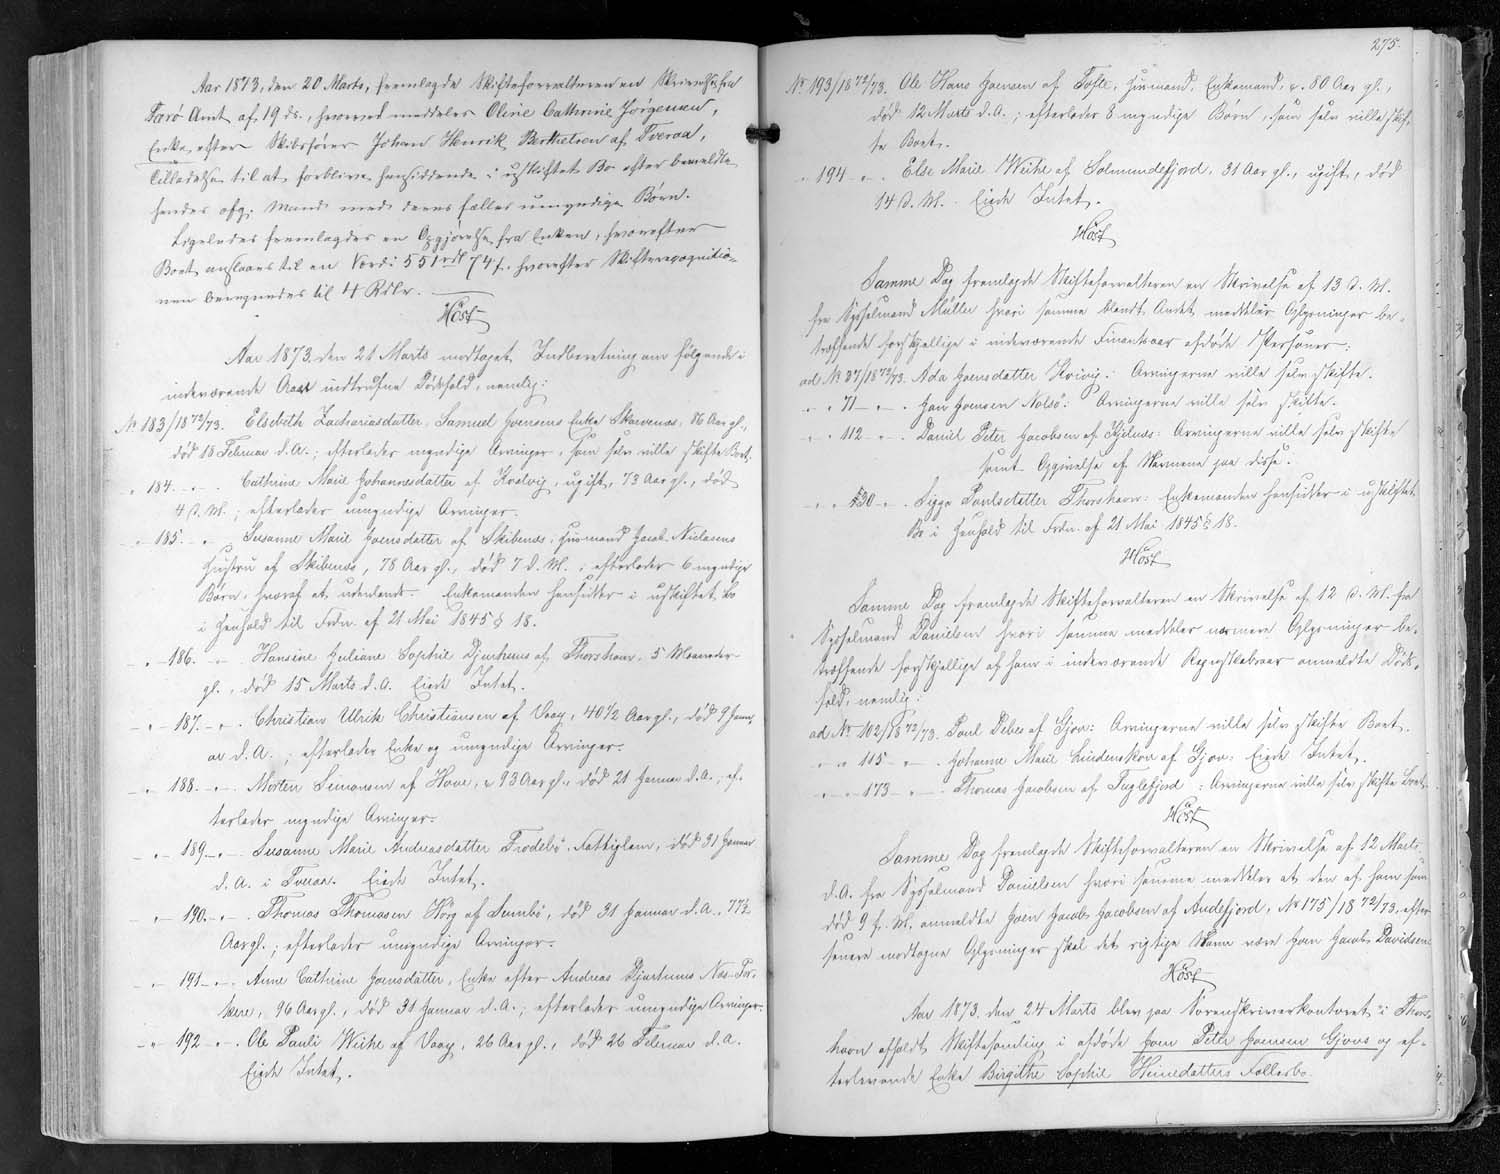 Aar 1873, den 20 Marts, fremlagde Skifteforvalteren en Skrivelse fra
Færø Amt af 19 ds., hvorved meddeles Oline Cathrine Jørgensen,
Enke efter Skibsfører Johan Henrik Berthelsen af Tveraa,
Tilladelse til at forblive hensiddende i uskiftet Bo efter bemeldte
hendes afg. Mand med deres fælles umyndige Børn.
Ligeledes fremlagdes en Opgjørelse fra Enken, hvorefter
Boet anslaaes til en Værdi 551 rdl 74 s. hvorefter Skifterecognitio-
nen beregnedes til 4 Rdlr.
Høst
Aar 1873 den 21 Marts modtaget Indberetning om følgende i
indeværende Aar indtrufne Dødsfald, nemlig:
No 183/1872/73. Elsebeth Zachariasdatter, Samuel Joensens Enke Skarvenæs, 86 Aar gl.,
død 18 Februar d.A.; efterlader myndige Arvinger, som selv ville skifte Boet.
" 184. " . Cathrine Marie Johannesdatter af Kvalvig, ugift, 73 Aar gl., død
4 d. M.; efterlader umyndige Arvinger.
" 185. " Susanne Marie Joensdatter af Skibenæs, Huusmand Jacob Niclasens
Hustru af Skibenæs, 78 Aar gl., død 7 d. M.; efterlader 6 myndige
Børn, hvoraf et udenlands. Enkemanden hensidder i uskiftet Bo
i Henhold til Frdn. af 21 Mai 1845 § 18.
" 186. " Hansine Juliane Sophie Djurhuus af Thorshavn, 5 Maaneder
gl., død 15 Marts d.A. Eiede Intet.
" 187. " . Christian Ulrik Christiansen af Vaag, 40 1/2 Aar gl., død 9 Janu-
ar d.A.; efterlader Enke og umyndige Arvinger.
" 188. " . Morten Simonsen af Hove, 93 Aar gl., død 21 Januar d.A.; ef-
terlader myndige Arvinger.
" 189. " Susanne Marie Andreasdatter Frodebø. Fattiglem, død 31 Januar
d.A. i Tveraa. Eiede Intet.
" 190. " . Thomas Thomasen Hörg af Sumbø, død 31 Januar d.A., 77 1/2
Aar gl.; efterlader umyndige Arvinger.
" 191 " . Anne Cathrine Joensdatter, Enke efter Andreas Djurhuus Næs-Por-
kere, 96 Aar gl., død 31 Januar d.A.; efterlader umyndige Arvinger.
" 192 " . Ole Pauli Weihe af Vaag, 26 Aar gl., død 26 Februar d.A.
Eiede Intet.
275.
No 193/1872/73. Ole Hans Joensen af Tofte, Huusmand, Enkemand, 80 Aar gl.,
død 12 Marts d.A.; efterlader 8 myndige Børn, som selv ville skif-
te Boet.
" 194 " . Else Marie Weihe af Solmundefjord, 31 Aar gl., ugift, død
14 d. M. Eiede Intet.
Høst
Samme Dag fremlagde Skifteforvalteren en Skrivelse af 13 d. M.
fra Sysselmand Müller hvori samme blandt Andet meddeler Oplysninger be-
træffende forskjellige i indeværende Finantsaar afdøde Personer:
ad No 37/1872/73. Ada Joensdatter Hvivig: Arvingerne ville selv skifte.
" " 71 " . Joen Joensen Nolsø: Arvingerne ville selv skifte.
" " 112 " . Daniel Peter Jacobsen af Kjelnæs: Arvingerne ville selv skifte
samt Opgivelse af Navnene paa disse.
" " 130 " . Sigga Poulsdatter Thorshavn: Enkemanden hensidder i uskiftet
Bo i Henhold til Frdn. af 21 Mai 1845 § 18.
Høst
Samme Dag fremlagde Skifteforvalteren en Skrivelse af 12 d. M. fra
Sysselmand Danielsen hvori samme meddeler nærmere Oplysninger be-
træffende forskjellige af ham i indeværende Regnskabsaar anmeldte Døds-
fald, nemlig:
ad No 102/1872/73. Poul Debes af Gjov: Arvingerne ville selv skifte Boet.
" " 115 " . Johanne Marie Lindenskov af Gjov: Eiede Intet.
" " 173 " . Thomas Jacobsen af Fuglefjord: Arvingerne ville selv skifte Boet.
Høst
Samme Dag fremlagde Skifteforvalteren en Skrivelse af 12 Marts
d.A. fra Sysselmand Danielsen hvori samme meddeler at den af ham som
død 9 f. M. anmeldte Joen Jacob Jacobsen af Andefjord, No 175/1872/73, efter
senere modtagne Oplysninger skal det rigtige Navn være Joen Jacob Davidsen
Høst
Aar 1873. den 24 Marts blev paa Sorenskriverkontoret i Thors-
havn afholdt Skiftesamling i afdøde Joen Peter Joensen Gjoves og ef-
terlevende Enke Birgithe Sophie Heinedatters Fællesbo.